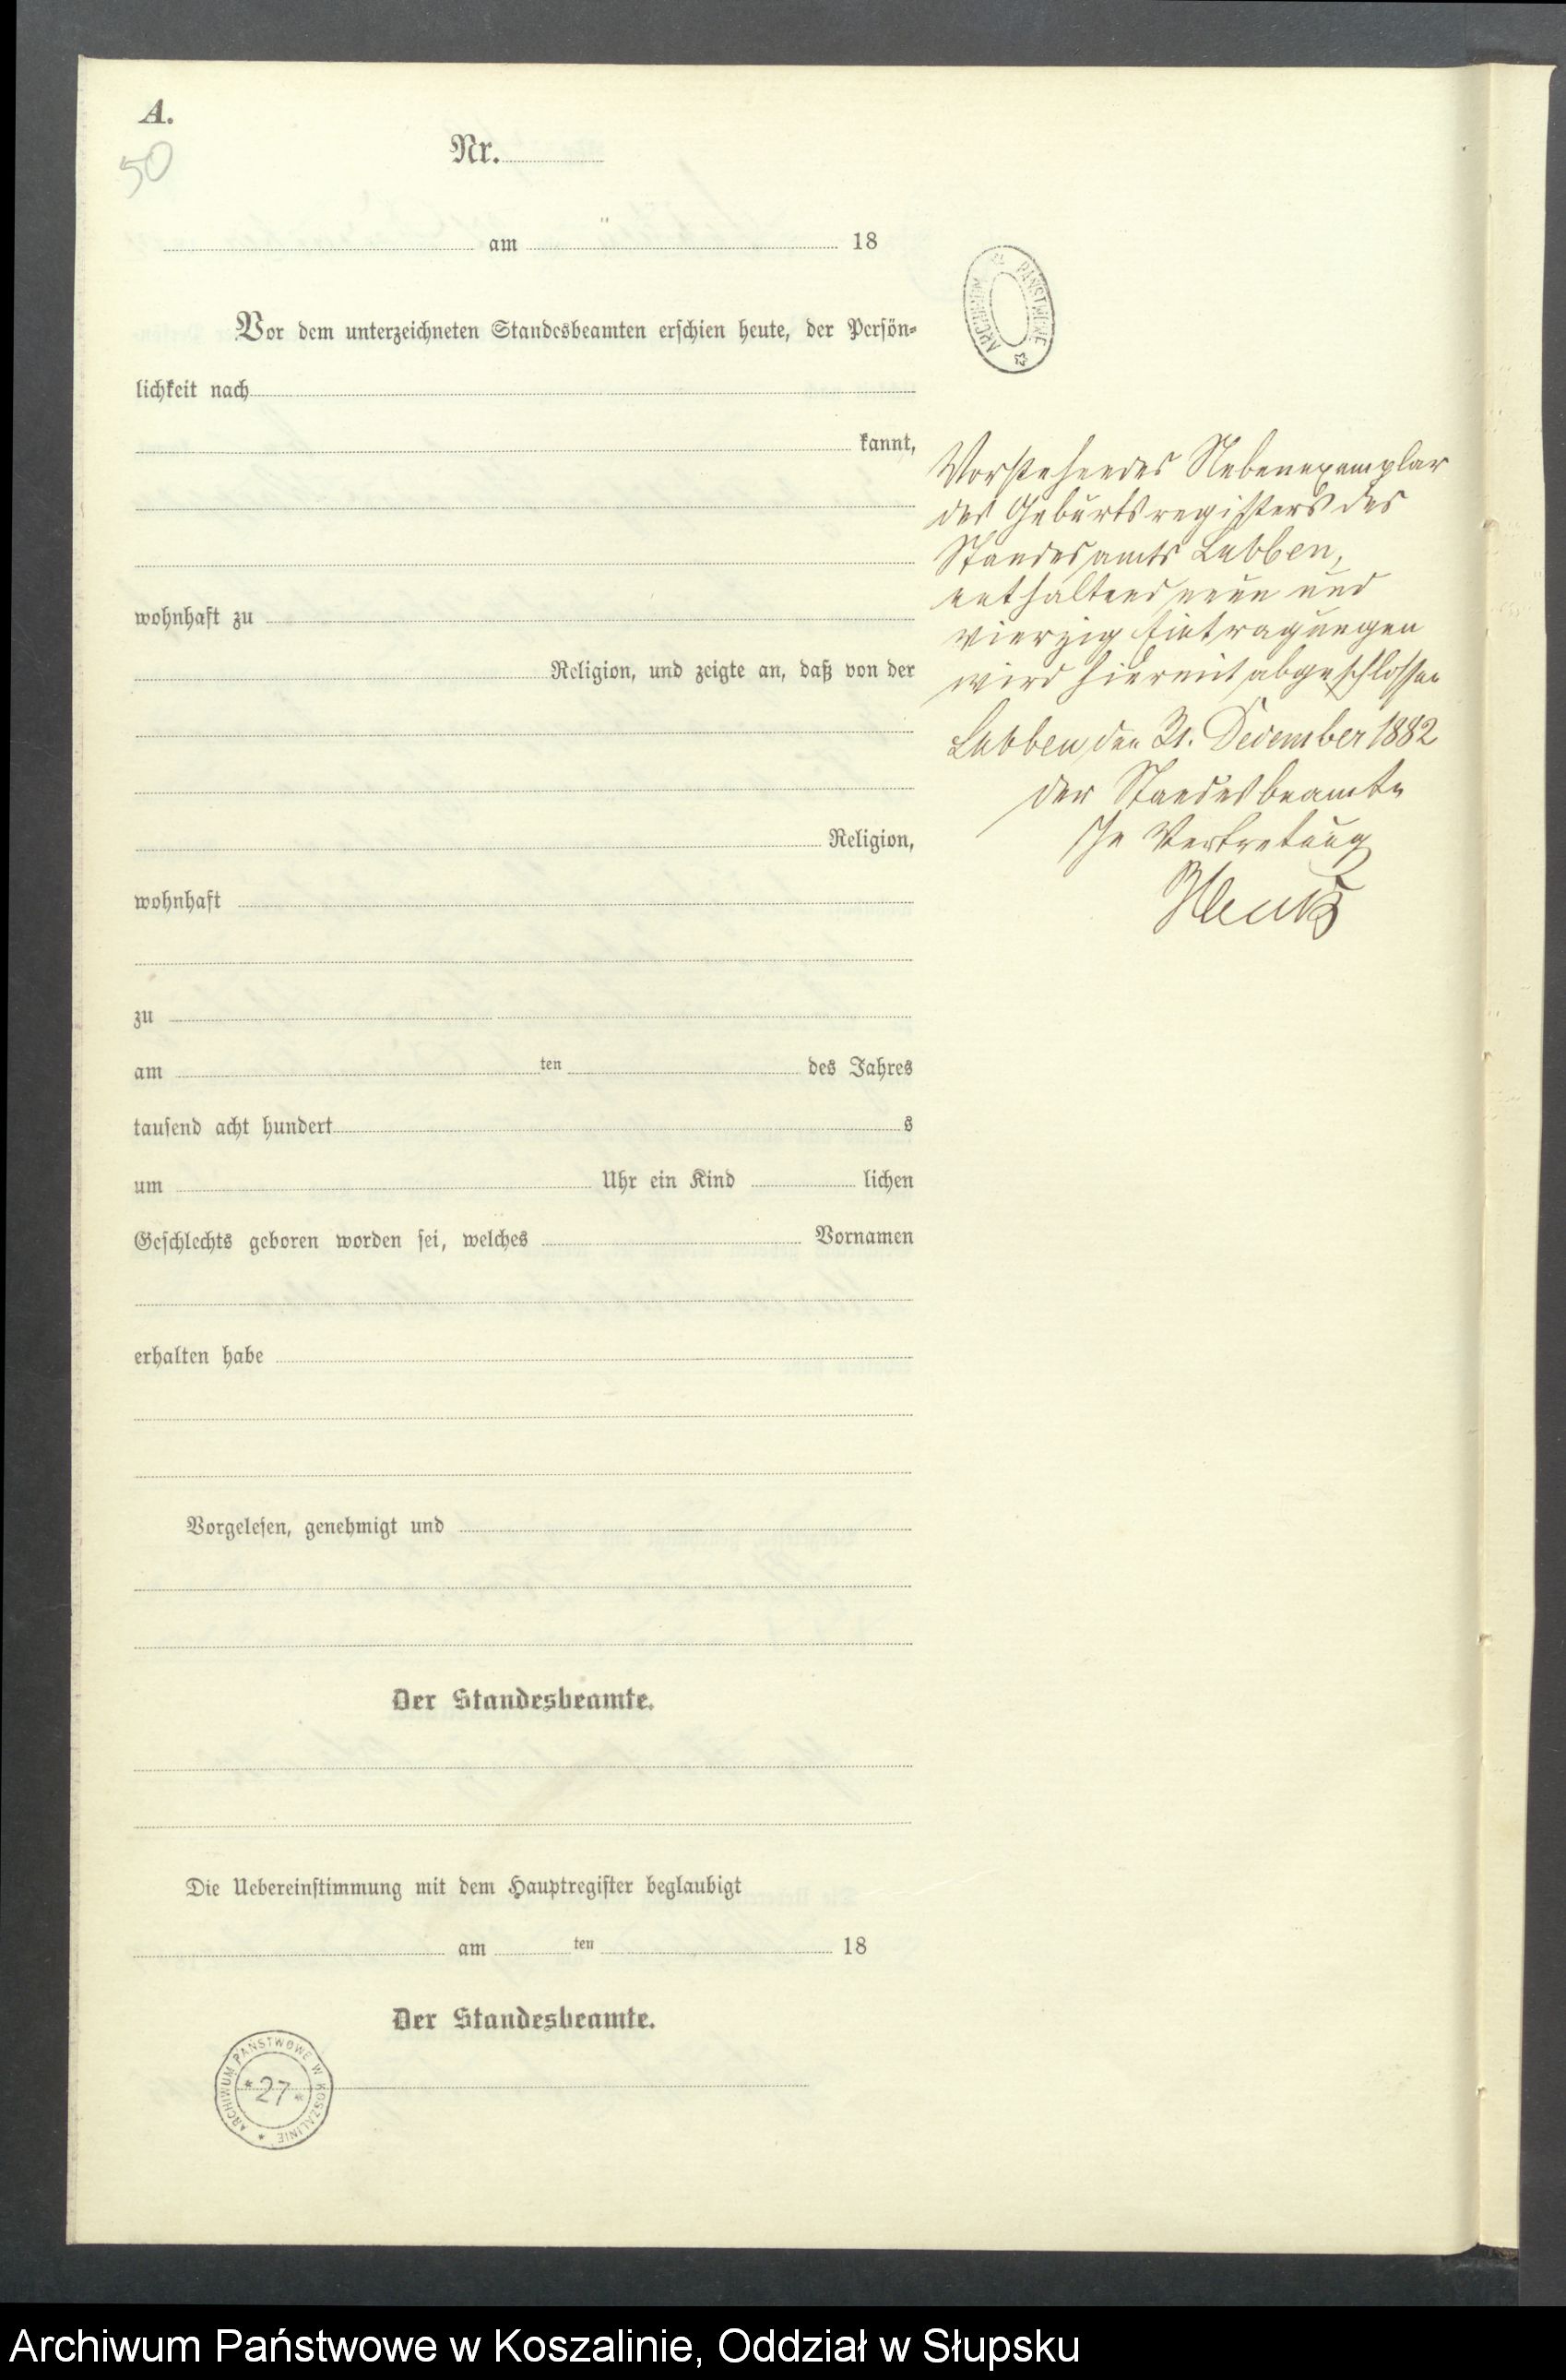 A.
50
Nr.
am 18
Vor dem unterzeichneten Standesbeamten erschien heute, der Persön-
lichkeit nach
kannt,
wohnhaft zu
Religion, und zeigte an, daß von der
Religion,
wohnhaft
zu
am ten des Jahres
tausend acht hundert s
um Uhr ein Kind lichen
Geschlechts geboren worden sei, welches Vornamen
erhalten habe
Vorgelesen, genehmigt und
Der Standesbeamte.
Die Uebereinstimmung mit dem Hauptregister beglaubigt
am ten 18
Der Standesbeamte.
ARCHIWUM PAŃSTWOWE W KOSZALINIE
*27*
ARCHIWUM PAŃSTWOWE
Vorstehendes Nebenexemplar
des Geburtsregisters des
Standesamts Lubben,
enthaltend neun und
vierzig Eintragungen
wird hiermit abgeschlossen
Lubben den 31. December 1882
der Standesbeamte
In Vertretung
Archiwum Państwowe w Koszalinie, Oddział w Słupsku